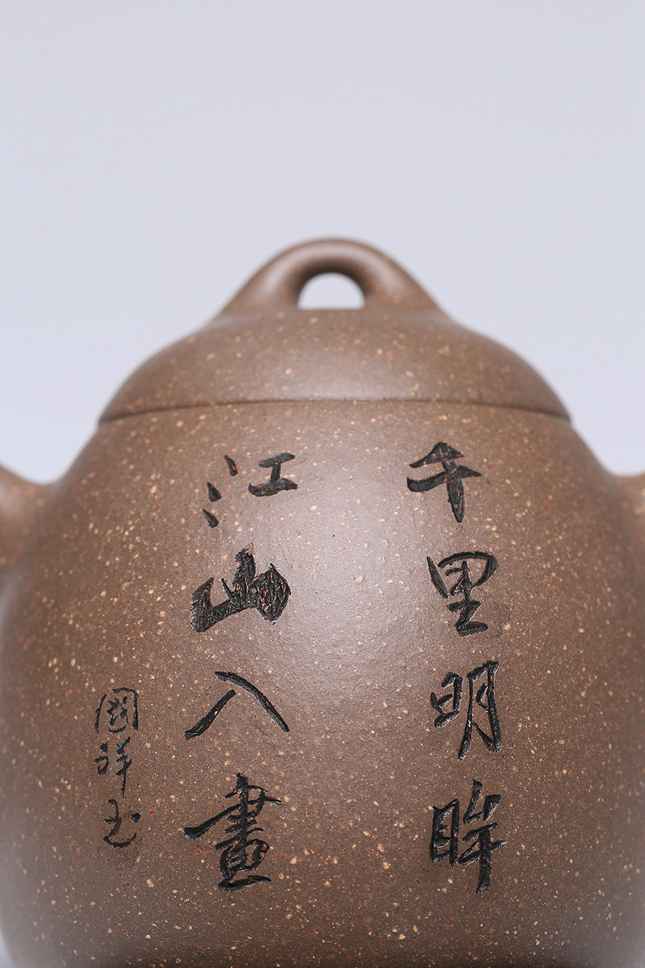 千里明眸
江山入畫
國祥